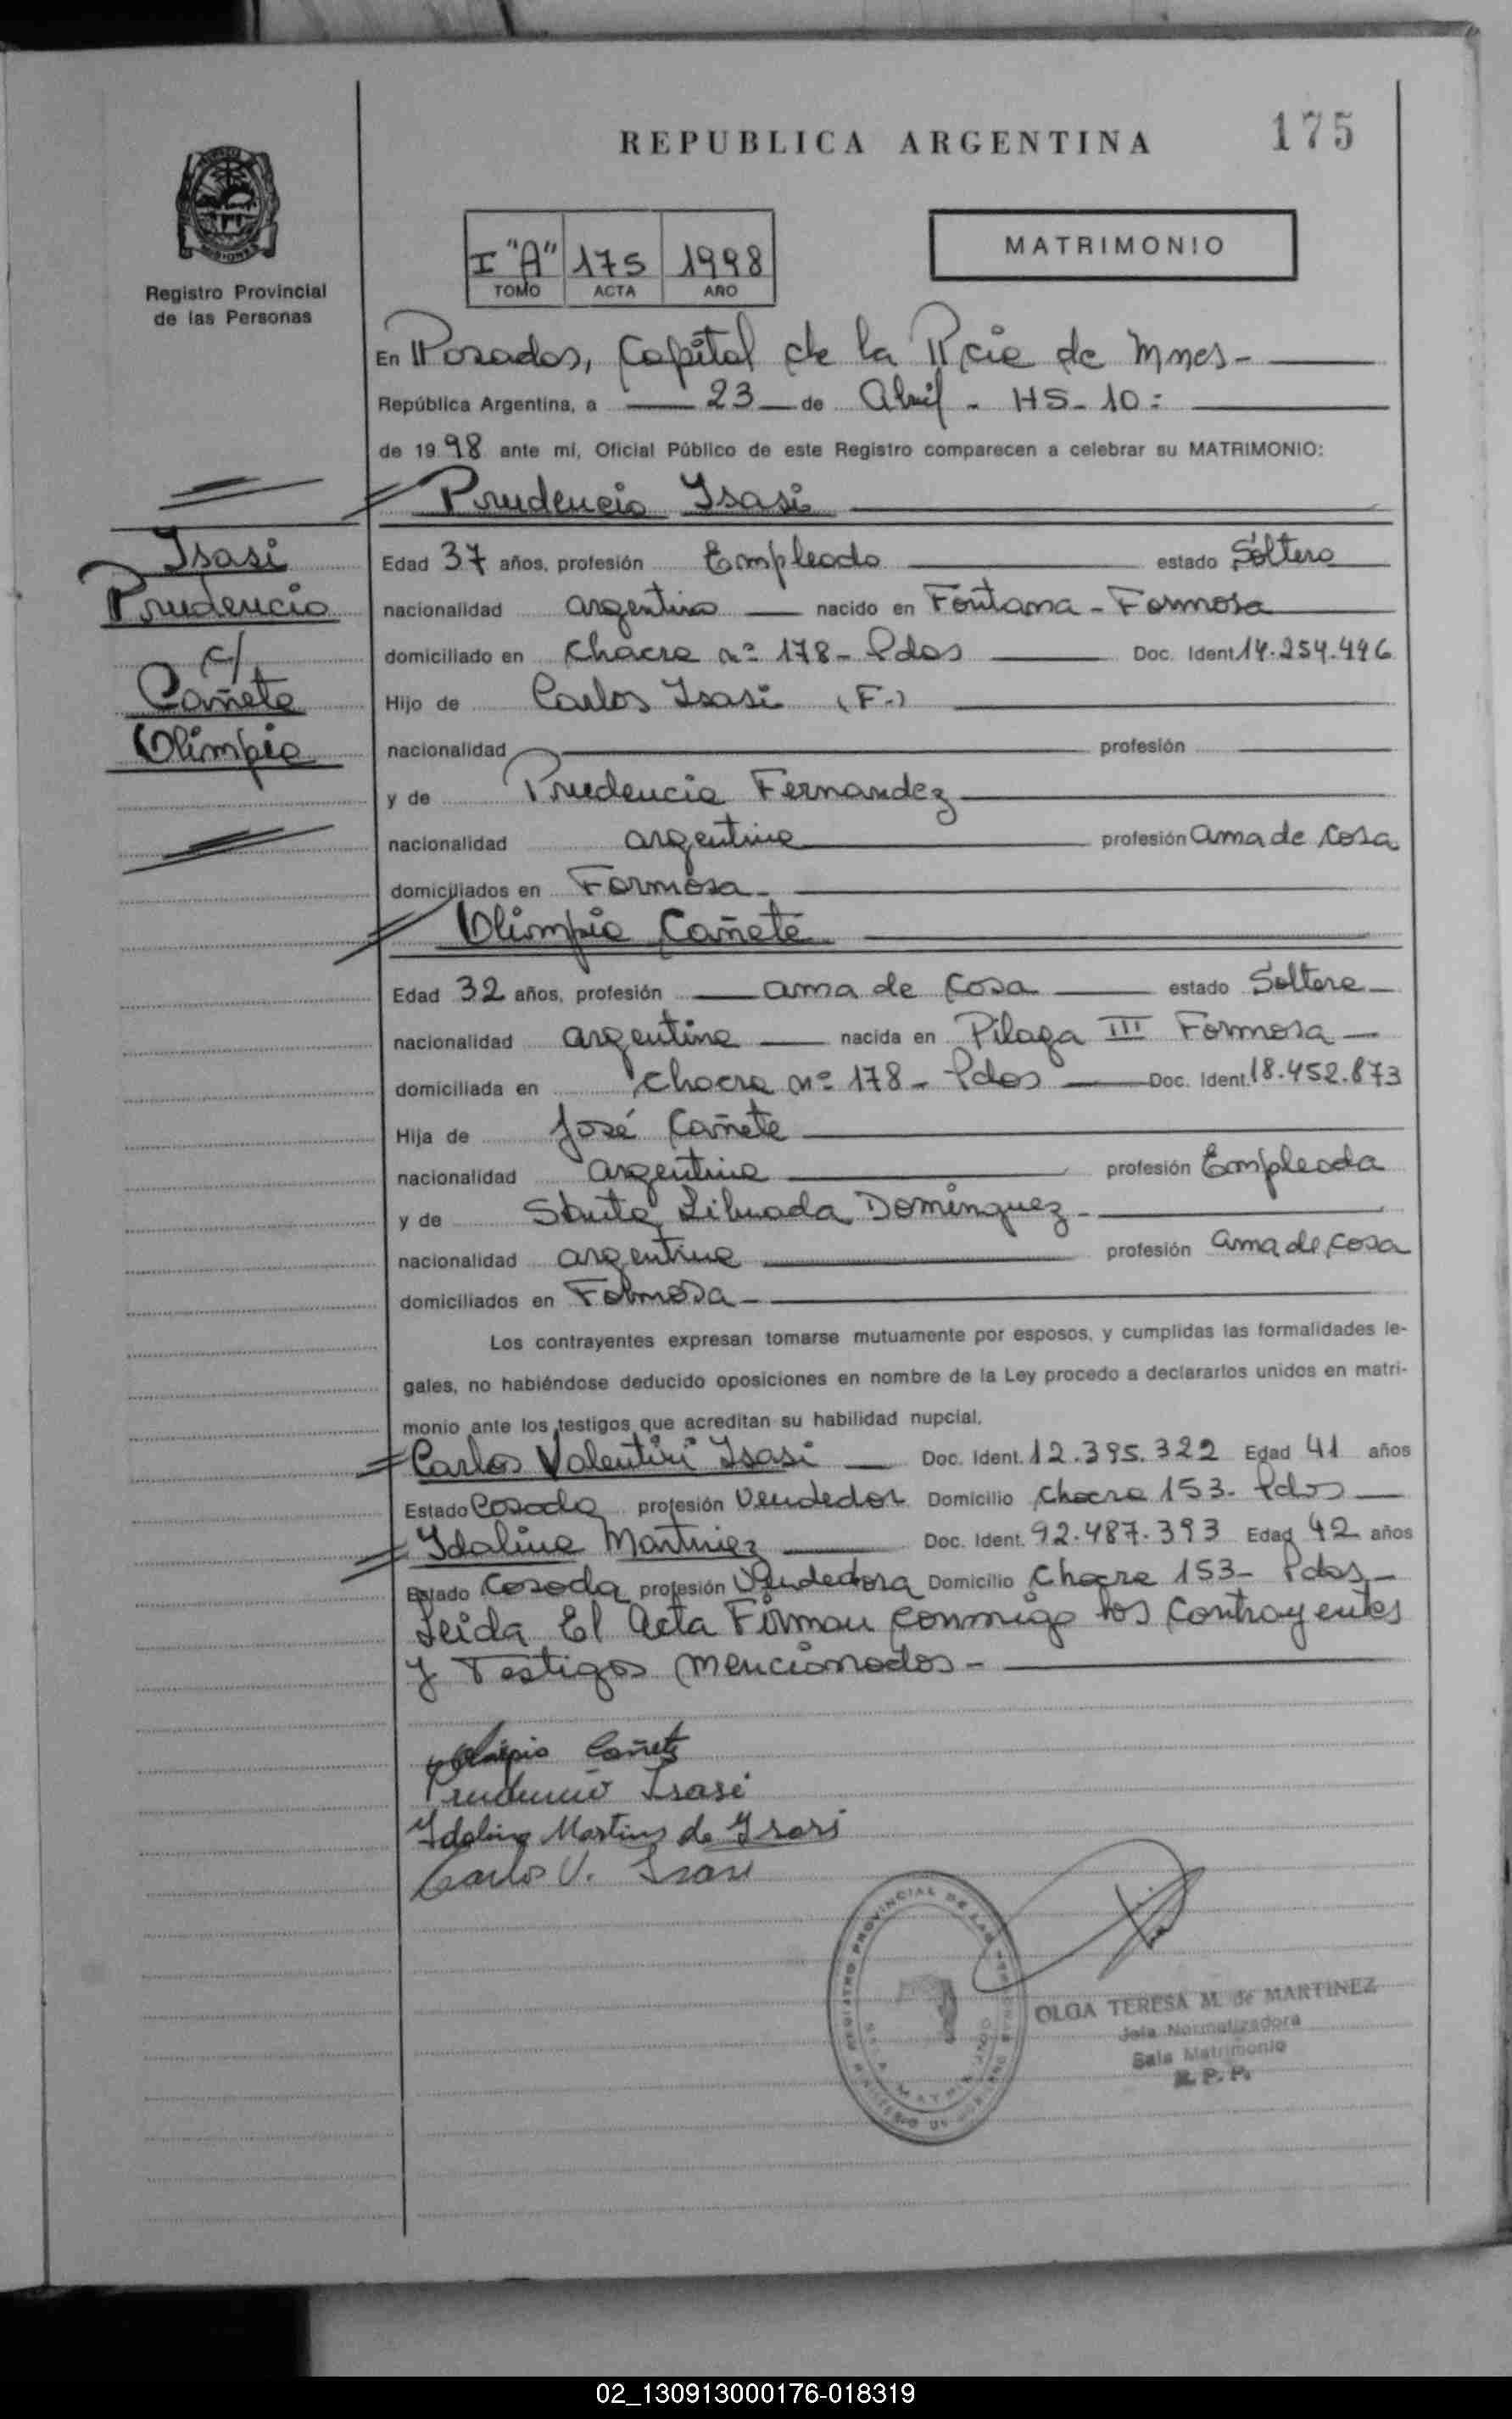 REPUBLICA ARGENTINA
175
MATRIMONIO
I "A" 175 1998
TOMO ACTA AÑO
Registro Provincial
de las Personas
En Posadas, Capital de la Pcia de Mnes-
República Argentina, a 23 de Abril - HS- 10:
de 1998 ante mi, Oficial Público de este Registro comparecen a celebrar su MATRIMONIO:
Prudencio Isasi
Isasi
Prudencio
c/
Cañete
Olimpia
Edad 37 años, profesión Empleado estado Soltero
nacionalidad argentino nacido en Fontana - Formosa
domiciliado en Chacra nº 178 - Pdas Doc. Ident. 14.254.496
Hijo de Carlos Isasi (F.)
nacionalidad profesión
y de Prudencia Fernandez
nacionalidad argentina profesión ama de casa
domiciliados en Formosa-
Olimpia Cañete
Edad 32 años, profesión ama de casa estado Soltera
nacionalidad argentina nacida en Pilaga III Formosa
domiciliada en Chacra nº 178 - Pdas Doc. Ident. 18.452.873
Hija de José Cañete
nacionalidad argentina profesión Empleada
y de Santa Librada Dominguez -
nacionalidad argentina profesión ama de casa
domiciliados en Formosa -
Los contrayentes expresan tomarse mutuamente por esposos, y cumplidas las formalidades le-
gales, no habiéndose deducido oposiciones en nombre de la Ley procedo a declararlos unidos en matri-
monio ante los testigos que acreditan su habilidad nupcial.
Carlos Valentin Isasi Doc. Ident. 12.395.322 Edad 41 años
Estado Casado profesión Vendedor Domicilio Chacra 153- Pdas
Idalina Martinez Doc. Ident. 92.487.393 Edad 42 años
Estado Casada profesión Vendedora Domicilio Chacra 153- Pdas-
Leida El Acta Firman conmigo los contrayentes
y Testigos mencionados -
Olimpia Cañete
Prudencio Isasi
Idalina Martinez de Isasi
Carlos V. Isasi
OLGA TERESA M. de MARTINEZ
Jefa Normalizadora
Sala Matrimonio
R. P. P.
02_130913000176-018319